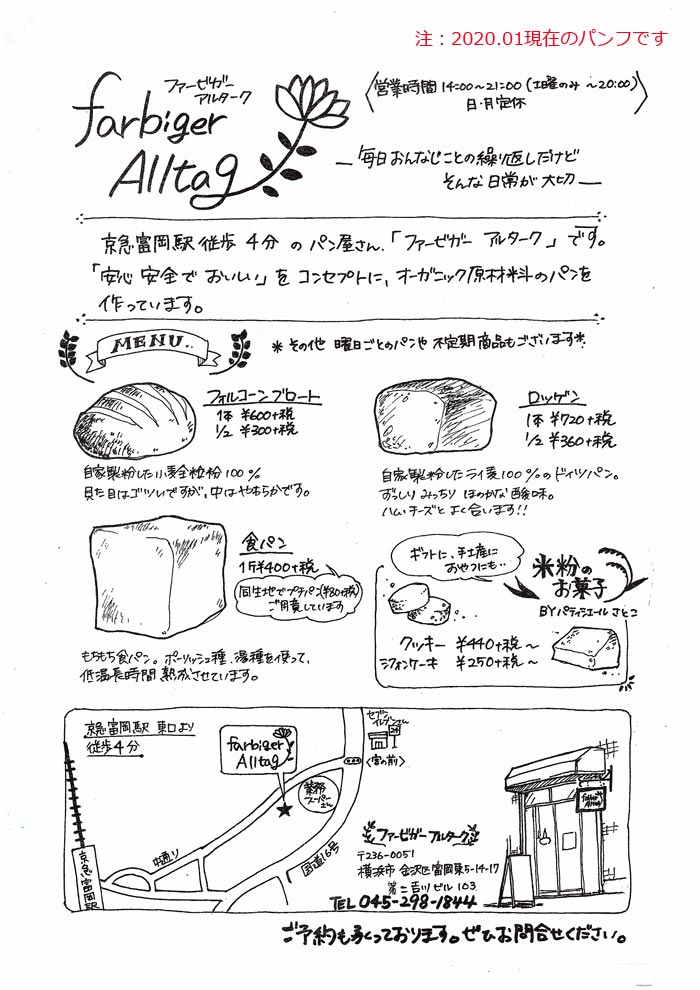 注：2020.01現在のパンフです
ファーゼガー
アルターク
farbiger
Alltag
〈営業時間 14:00〜21:00 (土曜のみ 〜20:00)
日・月定休〉
― 毎日おんなじことの繰り返しだけど
そんな日常が大切 ―
京急富岡駅 徒歩 4分 の パン屋さん、「ファーゼガー アルターク」です。
「安心 安全で おいしい」を コンセプトに、オーガニック原材料のパンを
作っています。
MENU..
＊その他 曜日ごとのパンや 不定期商品もございます＊
フォルコーンブロート
1本 ¥600+税
1/2 ¥300+税
自家製粉した小麦全粒粉100%
見た目はゴツいですが、中はやわらかです。
ロッゲン
1本 ¥720+税
1/2 ¥360+税
自家製粉したライ麦100%のドイツパン。
ずっしり みっちり ほのかな酸味。
ハム・チーズと よく合います!!
食パン
1斤¥400+税
同生地でプチパン(¥80+税)
ご用意しています
もちもち食パン。ポーリッシュ種、湯種を使って、
低温長時間 熟成させています。
ギフトに、手土産に
おやつにも..
米粉の
お菓子
BYパティシエール さとこ
クッキー ¥440+税〜
シフォンケーキ ¥250+税〜
京急富岡駅 東口より
徒歩4分
farbiger
Alltag
セブン
イレブンさん
〈宮の前〉
業務
スーパー
さん
中通り
国道16号
京急富岡駅
farbiger
Alltag
ファーゼガー アルターク
〒236-0051
横浜市 金沢区 富岡東5-14-17
第二吉川ビル 103
TEL 045-298-1844
ご予約も承っております。ぜひお問合せください。